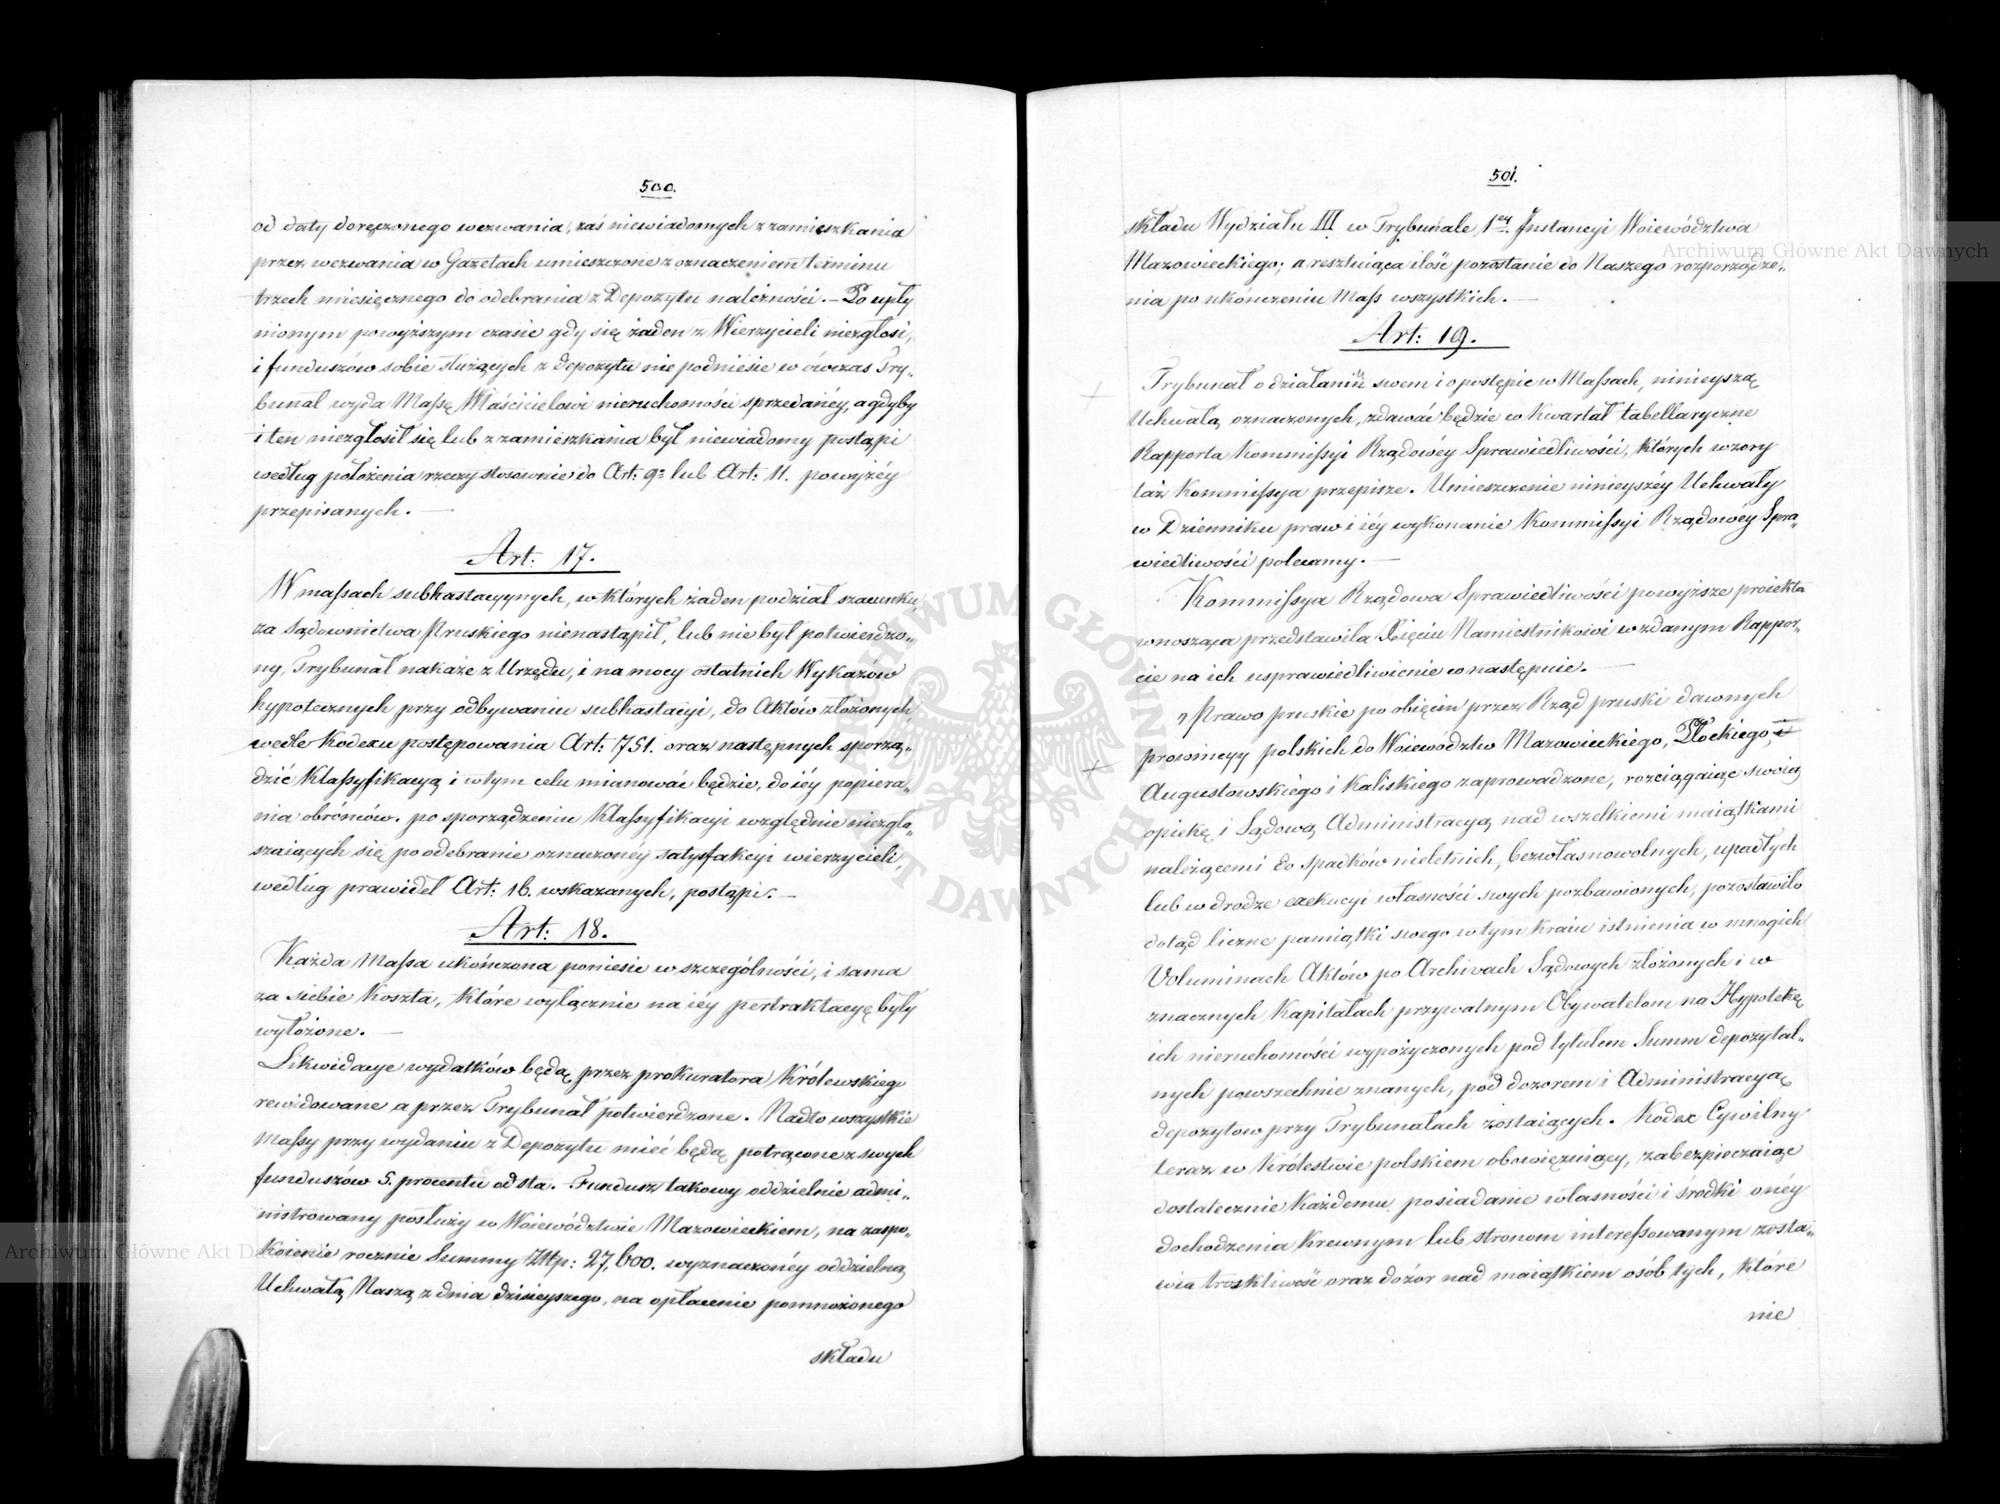 500.
od daty doręczonego wezwania, zaś niewiadomych z zamieszkania
przez wezwania w Gazetach umieszczone z oznaczeniem terminu
trzech miesięcznego do odebrania z Depozytu należności. – Po upły
nionym powyższym czasie gdy się żaden z Wierzycieli niezgłosi,
i funduszów sobie służących z depozytu nie podniesie w ówczas Try„
bunał wyda Massę Właścicielowi nieruchomości sprzedanéy, a gdyby
i ten niezgłosił się lub z zamieszkania był niewiadomy postąpi
według położenia rzeczy stosownie do Art: 9º lub Art: 11. powyżéy
przepisanych. —
Art: 17.
W massach subhastacyynych, w których żaden podział szacunku
za Sądownictwa Pruskiego nienastąpił, lub nie był potwierdzo„
ny, Trybunał nakaże z Urzędu, i na mocy ostatnich Wykazów
hypotecznych przy odbywaniu subhastacyi, do Aktów złożonych,
wedle Kodexu postępowania Art: 751. oraz następnych sporzą„
dzić Klassyfikacyą i w tym celu mianować będzie, do iéy popiera„
nia obrońców. po sporządzeniu Klassyfikacyi względnie niezgła„
szaiących się po odebranie oznaczonéy satysfakcyi wierzycieli,
według prawideł Art: 16. wskazanych, postąpi. —
Art: 18.
Każda Massa ukończona poniesie w szczególności, i sama
za siebie Koszta, które wyłącznie na iéy pertraktacyę były
wyłożone. —
Likwidacye wydatków będą przez prokuratora Królewskiego
rewidowane a przez Trybunał potwierdzone. Nadto wszystkie
Massy przy wydaniu z Depozytu mieć będą potrącone z swych
funduszów 5. procentu od sta. Fundusz takowy oddzielnie admi„
nistrowany posłuży w Woiewództwie Mazowieckiem, na zaspo„
koienie rocznie Summy Złtp: 27,600. wyznaczonéy oddzielną
Uchwałą Naszą z dnia dzisieyszego, na opłacenie pomnożonego
składu
501.
składu Wydziału III w Trybunale 1ey Instancyi Woiewództwa
Mazowieckiego; a resztuiąca ilość pozostanie do Naszego rozporządze„
nia po ukończeniu Mass wszystkich. —
Art: 19.
Trybunał o działaniu swem i o postępie w Massach, ninieyszą
Uchwałą, oznaczonych, zdawać będzie w Kwartał tabellaryczne
Rapporta Kommissyi Rządowéy Sprawiedliwości, których wzory
taż Kommissya przepisze. Umieszczenie ninieyszéy Uchwały
w Dzienniku praw i iéy wykonanie Kommissyi Rządowéy Spra„
wiedliwości polecamy. —
Kommissya Rządowa Sprawiedliwości powyższe proiekta
wnosząca przedstawiła Xięciu Namiestnikowi w zdanym Rappor„
cie na ich usprawiedliwienie co następuie. —
„ Prawo pruskie po obięciu przez Rząd pruski dawnych
prowincyy polskich do Woiewództw Mazowieckiego, Płockiego, i
Augustowskiego i Kaliskiego zaprowadzone, rozciągaiąc swoią
opiekę i Sądową Administracyą nad wszelkiemi maiątkami
należącemi do spadków nieletnich, bezwłasnowolnych, upadłych
lub w drodze exekucyi własności swych pozbawionych, pozostawiło
dotąd liczne pamiątki swego w tym kraiu istnienia w mnogich
Voluminach Aktów po Archivach Sądowych złożonych i w
znacznych Kapitałach prywatnym Obywatelom na Hypotekę
ich nieruchomości wypożyczonych pod tytułem Summ depozytal„
nych powszechnie znanych, pod dozorem i Administracyą
depozytow przy Trybunałach zostaiących. Kodex Cywilny
teraz w Królestwie polskiem obowięzuiący, zabezpieczaiąc
dostatecznie każdemu posiadanie własności i środki onéy
dochodzenia krewnym lub stronom interessowanym zosta„
wia troskliwość oraz dozór nad maiątkiem osób tych, które
nie
Archiwum Główne Akt Dawnych
Archiwum Główne Akt Dawnych
ARCHIWUM GŁÓWNE AKT DAWNYCH